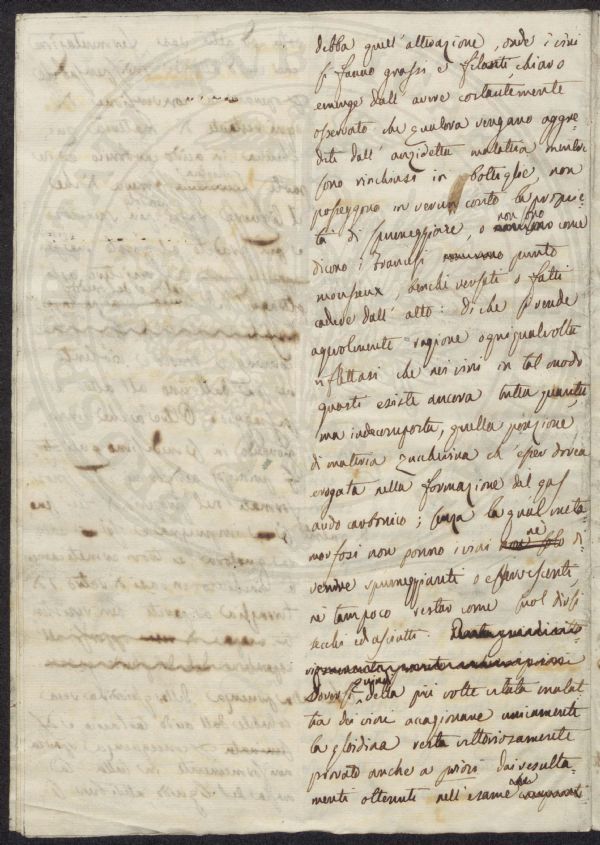 debba quell' alterazione, onde i vini
si fanno grassi e filanti, chiaro
emerge dall' avere costantemente
osservato che qualora vengano aggre-
diti dall' anzidetta malattia mentre
sono rinchiusi in bottiglie, non
posseggono in verun conto la proprie-
tà di spumeggiare, o non sono come
dicono i francesi punto
mousseux, benchè versati o fatti
cadere dall' alto: di che si rende
agevolmente ragione ogniqualvolta
riflettasi che nei vini in tal modo
guasti esiste ancora tutta quanta,
ma indecomposta, quella porzione
di materia zuccherina ch' esser dovea
erogata nella formazione del gas
acido carbonico; senza la qual meta-
morfosi non ponno i vini nè di-
venire spumeggianti o effervescenti,
nè tampoco restar come suol dirsi
secchi ed asciutti.
Doversi della più volte citata malat-
tia dei vini accagionare unicamente
la gloidina resta vittoriosamente
provato anche a priori dai resulta-
menti ottenuti nell' esame